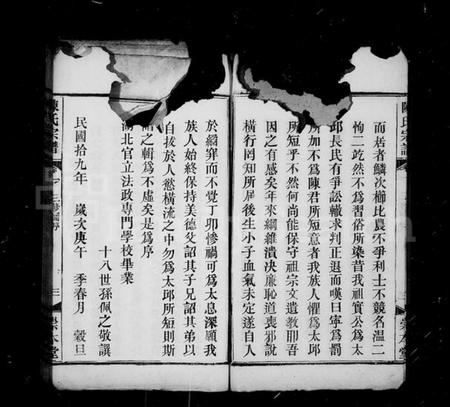 而居者鱗次櫛比農不爭利士不競名溫二
恂二屹然不為習俗所染昔我祖實公為太
邱長民有爭訟輒求判正退而嘆曰寧為罰
所加不為陳君所短意者我族人懼為太邱
所短乎不然何尚能保守祖宗文遺教耶吾
因之有感矣年來綱維潰決廉恥道喪邪說
橫行罔知所屆後生小子血氣未定遂自人
於縞穽而不覺丁卯慘禍可為太息深願我
族人始終保持美德父詔其子兄詔其弟以
自拔於人慾橫流之中勿為太邱所短則斯
譜之輯為不虛矣是為序
湖北官立法政專門學校畢業
十八世孫佩之敬譔
民國十九年 歲次庚午 季春月 穀旦
陳氏宗譜
聚本堂
陳氏宗譜